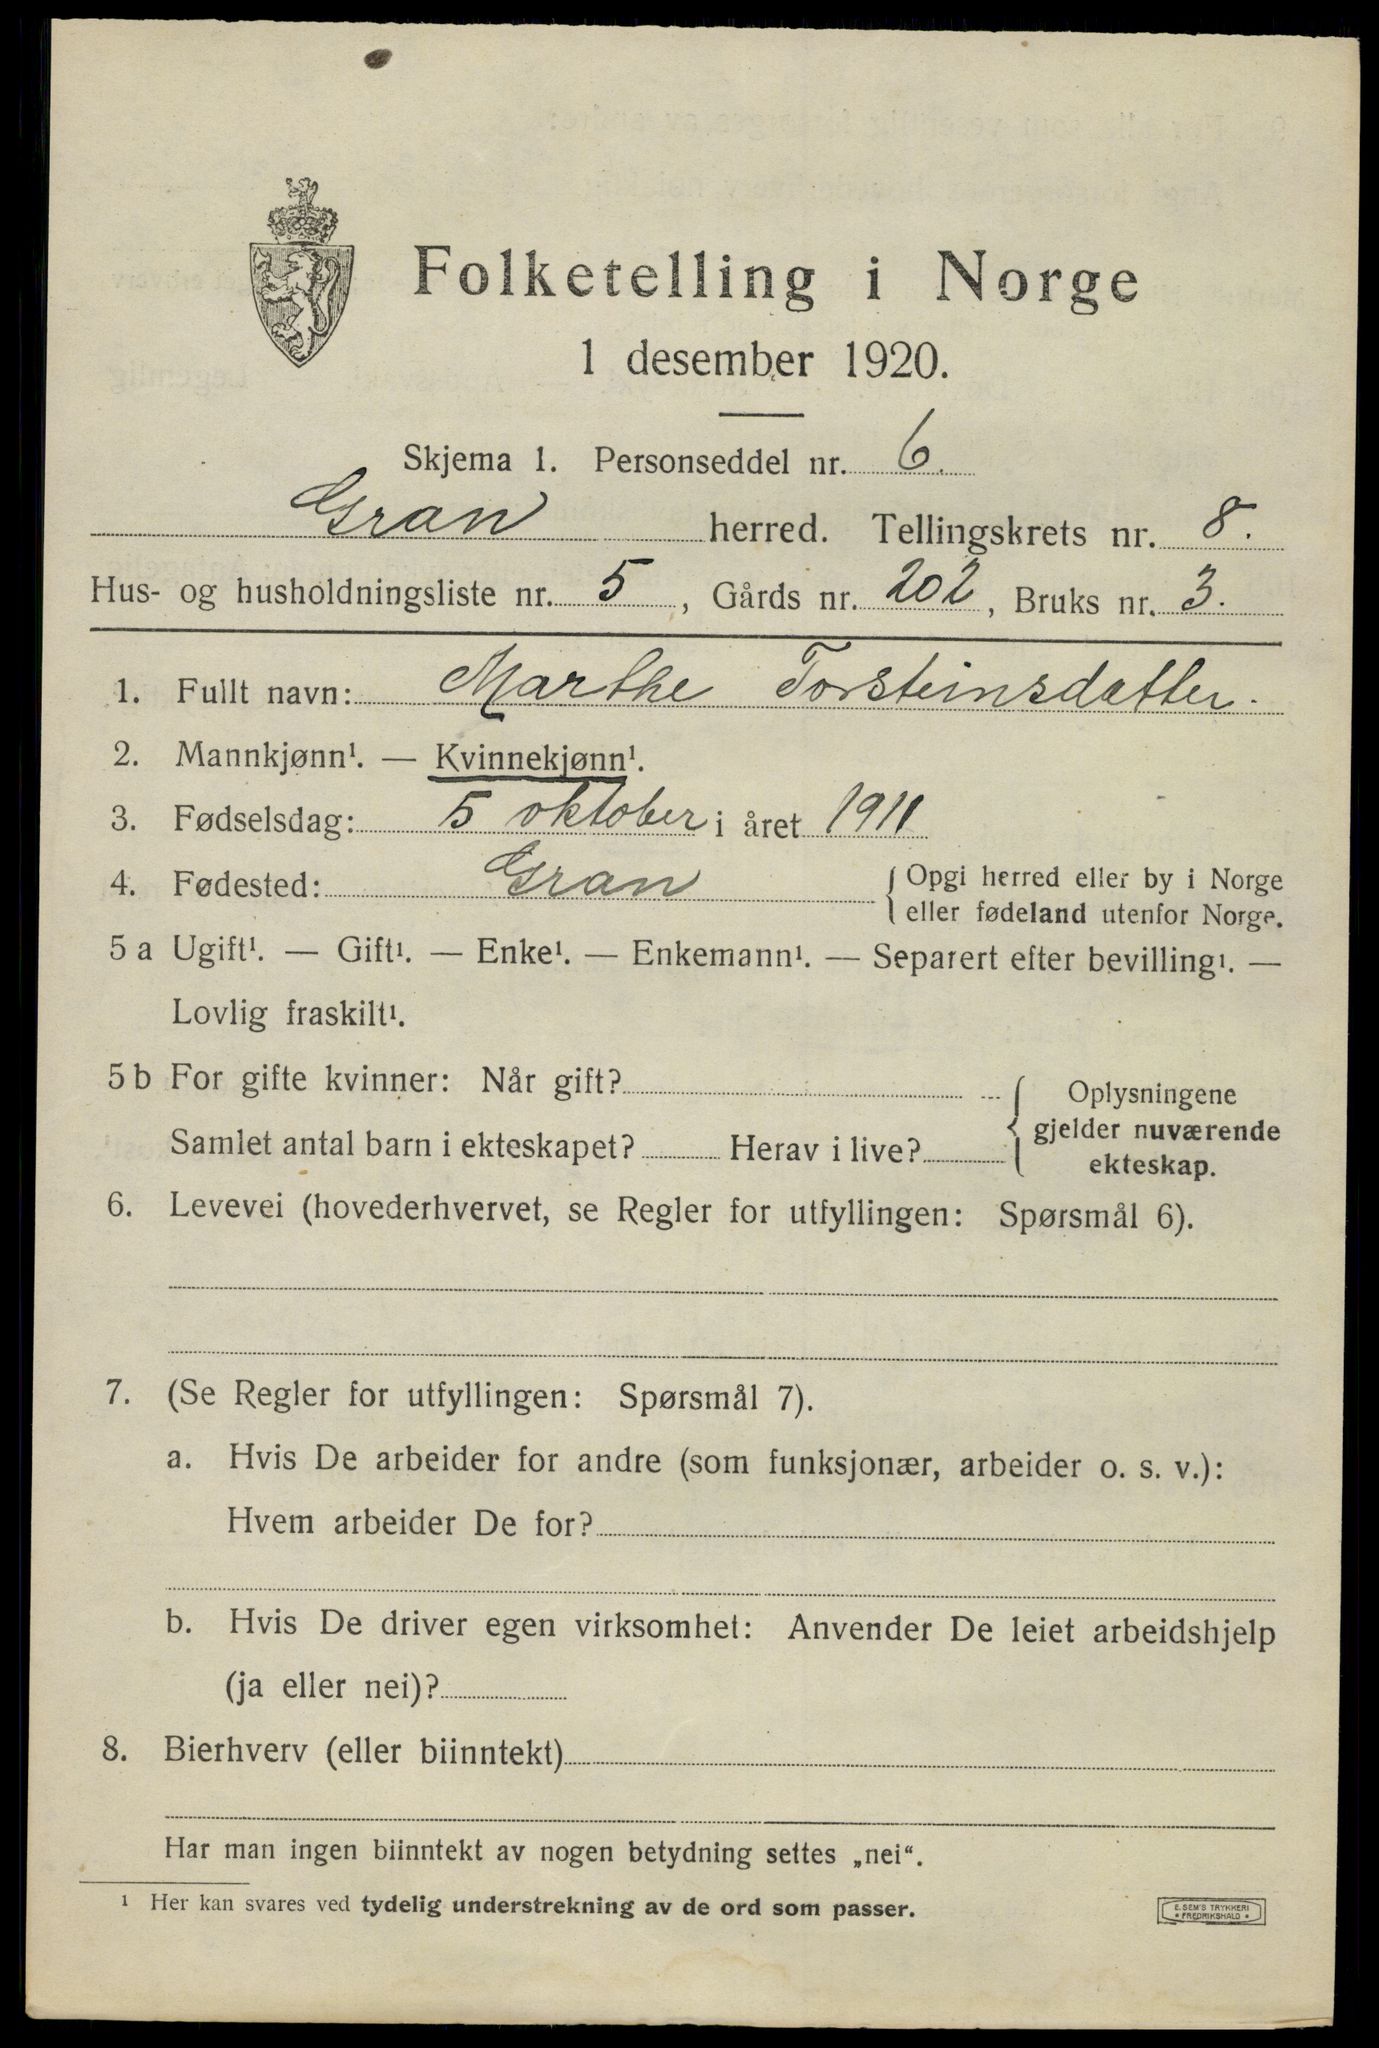 Folketelling i Norge
1 desember 1920.
Skjema 1. Personseddel nr. 6.
Gran herred. Tellingskrets nr. 8.
Hus- og husholdningsliste nr. 5, Gårds nr. 202, Bruks nr. 3.
1. Fullt navn: Marthe Torsteinsdatter.
2. Mannkjønn¹. — Kvinnekjønn¹.
3. Fødselsdag: 5 oktober i året 1911
4. Fødested: Gran { Opgi herred eller by i Norge
eller fødeland utenfor Norge.
5 a Ugift¹. — Gift¹. — Enke¹. — Enkemann¹. — Separert efter bevilling¹. —
Lovlig fraskilt¹.
5 b For gifte kvinner: Når gift?
Samlet antal barn i ekteskapet? Herav i live? { Oplysningene
gjelder nuværende
ekteskap.
6. Levevei (hovederhvervet, se Regler for utfyllingen: Spørsmål 6).
7. (Se Regler for utfyllingen: Spørsmål 7).
a. Hvis De arbeider for andre (som funksjonær, arbeider o. s. v.):
Hvem arbeider De for?
b. Hvis De driver egen virksomhet: Anvender De leiet arbeidshjelp
(ja eller nei)?
8. Bierhverv (eller biinntekt)
Har man ingen biinntekt av nogen betydning settes „nei“.
¹ Her kan svares ved tydelig understrekning av de ord som passer.
E. SEM'S TRYKKERI
• FREDRIKSHALD •